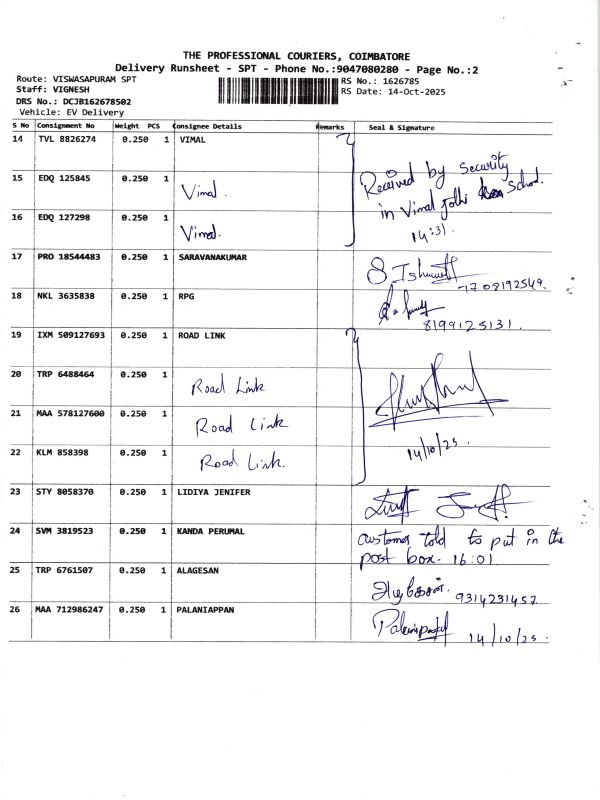 THE PROFESSIONAL COURIERS, COIMBATORE
Delivery Runsheet - SPT - Phone No.:9047080280 - Page No.:2
Route: VISWASAPURAM SPT
RS No.: 1626785
Staff: VIGNESH
RS Date: 14-Oct-2025
DRS No.: DCJB162678502
Vehicle: EV Delivery
S No Consignment No Weight PCS Consignee Details Remarks Seal & Signature
14 TVL 8826274 0.250 1 VIMAL
15 EDQ 125845 0.250 1 Vimal.
Received by Security
in Vimal Jothi School.
16 EDQ 127298 0.250 1 Vimal.
14:31.
17 PRO 18544483 0.250 1 SARAVANAKUMAR
7708192549.
18 NKL 3635838 0.250 1 RPG
8199125131.
19 IXM 509127693 0.250 1 ROAD LINK
20 TRP 6488464 0.250 1 Road Link
21 MAA 578127600 0.250 1 Road Link
22 KLM 858398 0.250 1 Road Link.
14/10/25.
23 STY 8058370 0.250 1 LIDIYA JENIFER
24 SVM 3819523 0.250 1 KANDA PERUMAL
customer told to put in the
post box. 16:01
25 TRP 6761507 0.250 1 ALAGESAN
9314231457.
26 MAA 712986247 0.250 1 PALANIAPPAN
14/10/25.